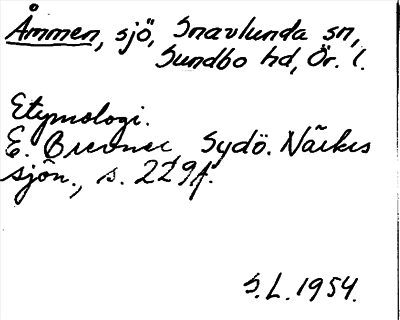 Åmmen, sjö, Snavlunda sn,
Sundbo hd, Ör. l.
Etymologi.
E. Brevner Sydö. Närkes
sjön., s. 229f.
S.L. 1954.